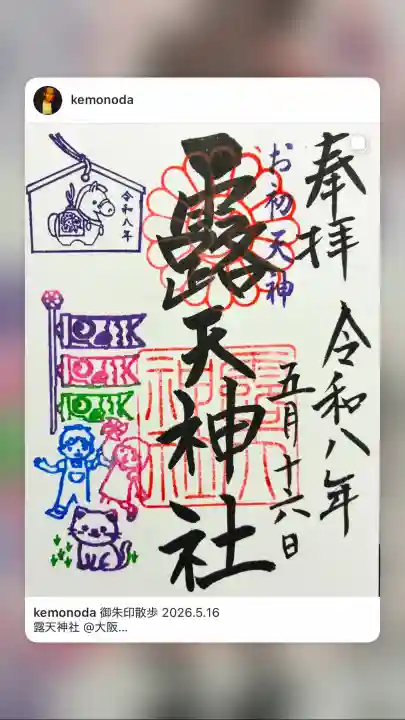 kemonoda
奉拝
令和八年
五月十六日
お初天神
露天神社
令和八年
露天
神社
kemonoda 御朱印散歩 2026.5.16
露天神社 @大阪...